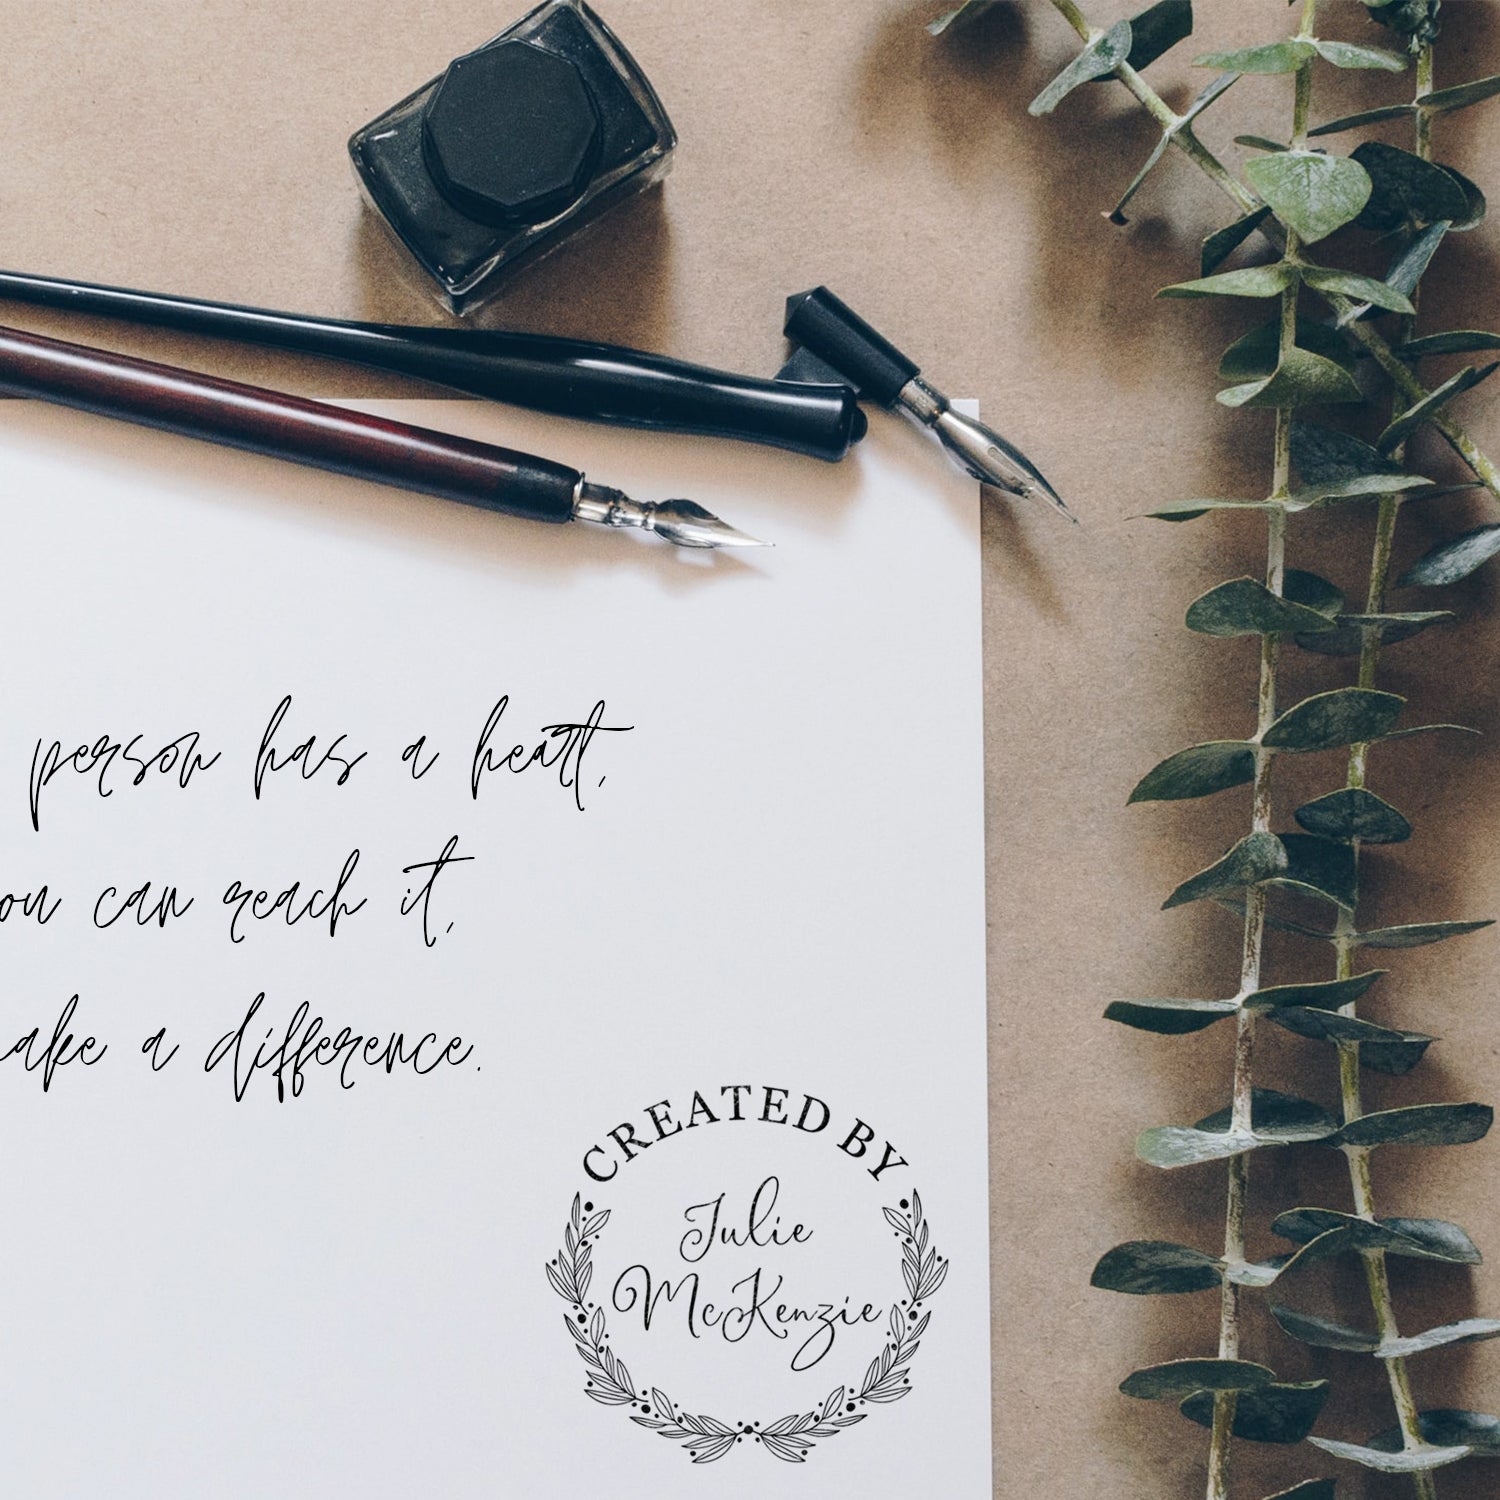 person has a heart,
ou can reach it,
ake a difference.
CREATED BY
Julie
McKenzie